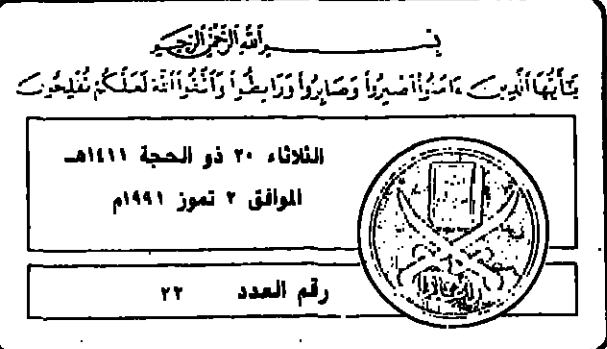 بِسْمِ اللَّهِ الرَّحْمَٰنِ الرَّحِيمِ
يَٰٓأَيُّهَا ٱلَّذِينَ ءَامَنُوا۟ ٱصْبِرُوا۟ وَصَابِرُوا۟ وَرَابِطُوا۟ وَٱتَّقُوا۟ ٱللَّهَ لَعَلَّكُمْ تُفْلِحُونَ
الثلاثاء ٢٠ ذو الحجة ١٤١١هـ
الموافق ٢ تموز ١٩٩١م
رقم العدد ٢٢